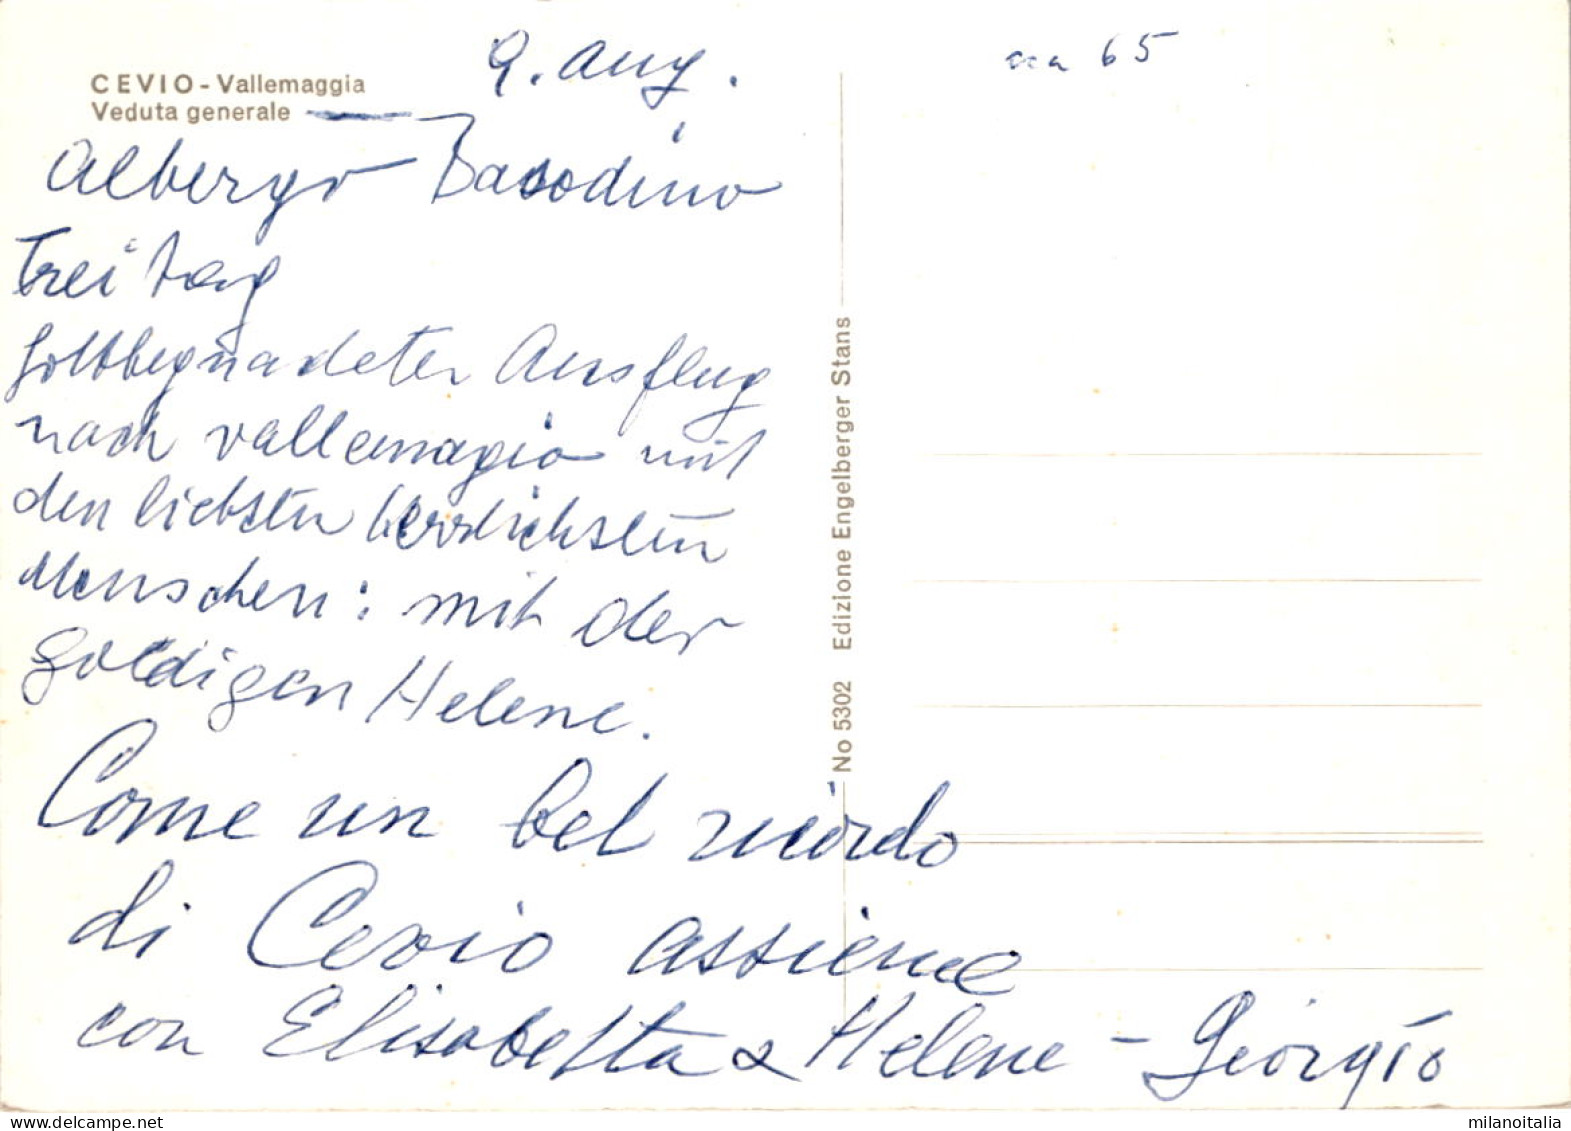 CEVIO - Vallemaggia
Veduta generale
9. Aug.
65
Albergo Basodino
Freitag
Gottbegnadeter Ausflug
nach Vallemagia mit
den liebsten herrlichsten
Menschen: mit der
goldigen Helene.
Come un bel ricordo
di Cevio assieme
con Elisabetta & Helene - Giorgio
No 5302 Edizione Engelberger Stans
milanoitalia